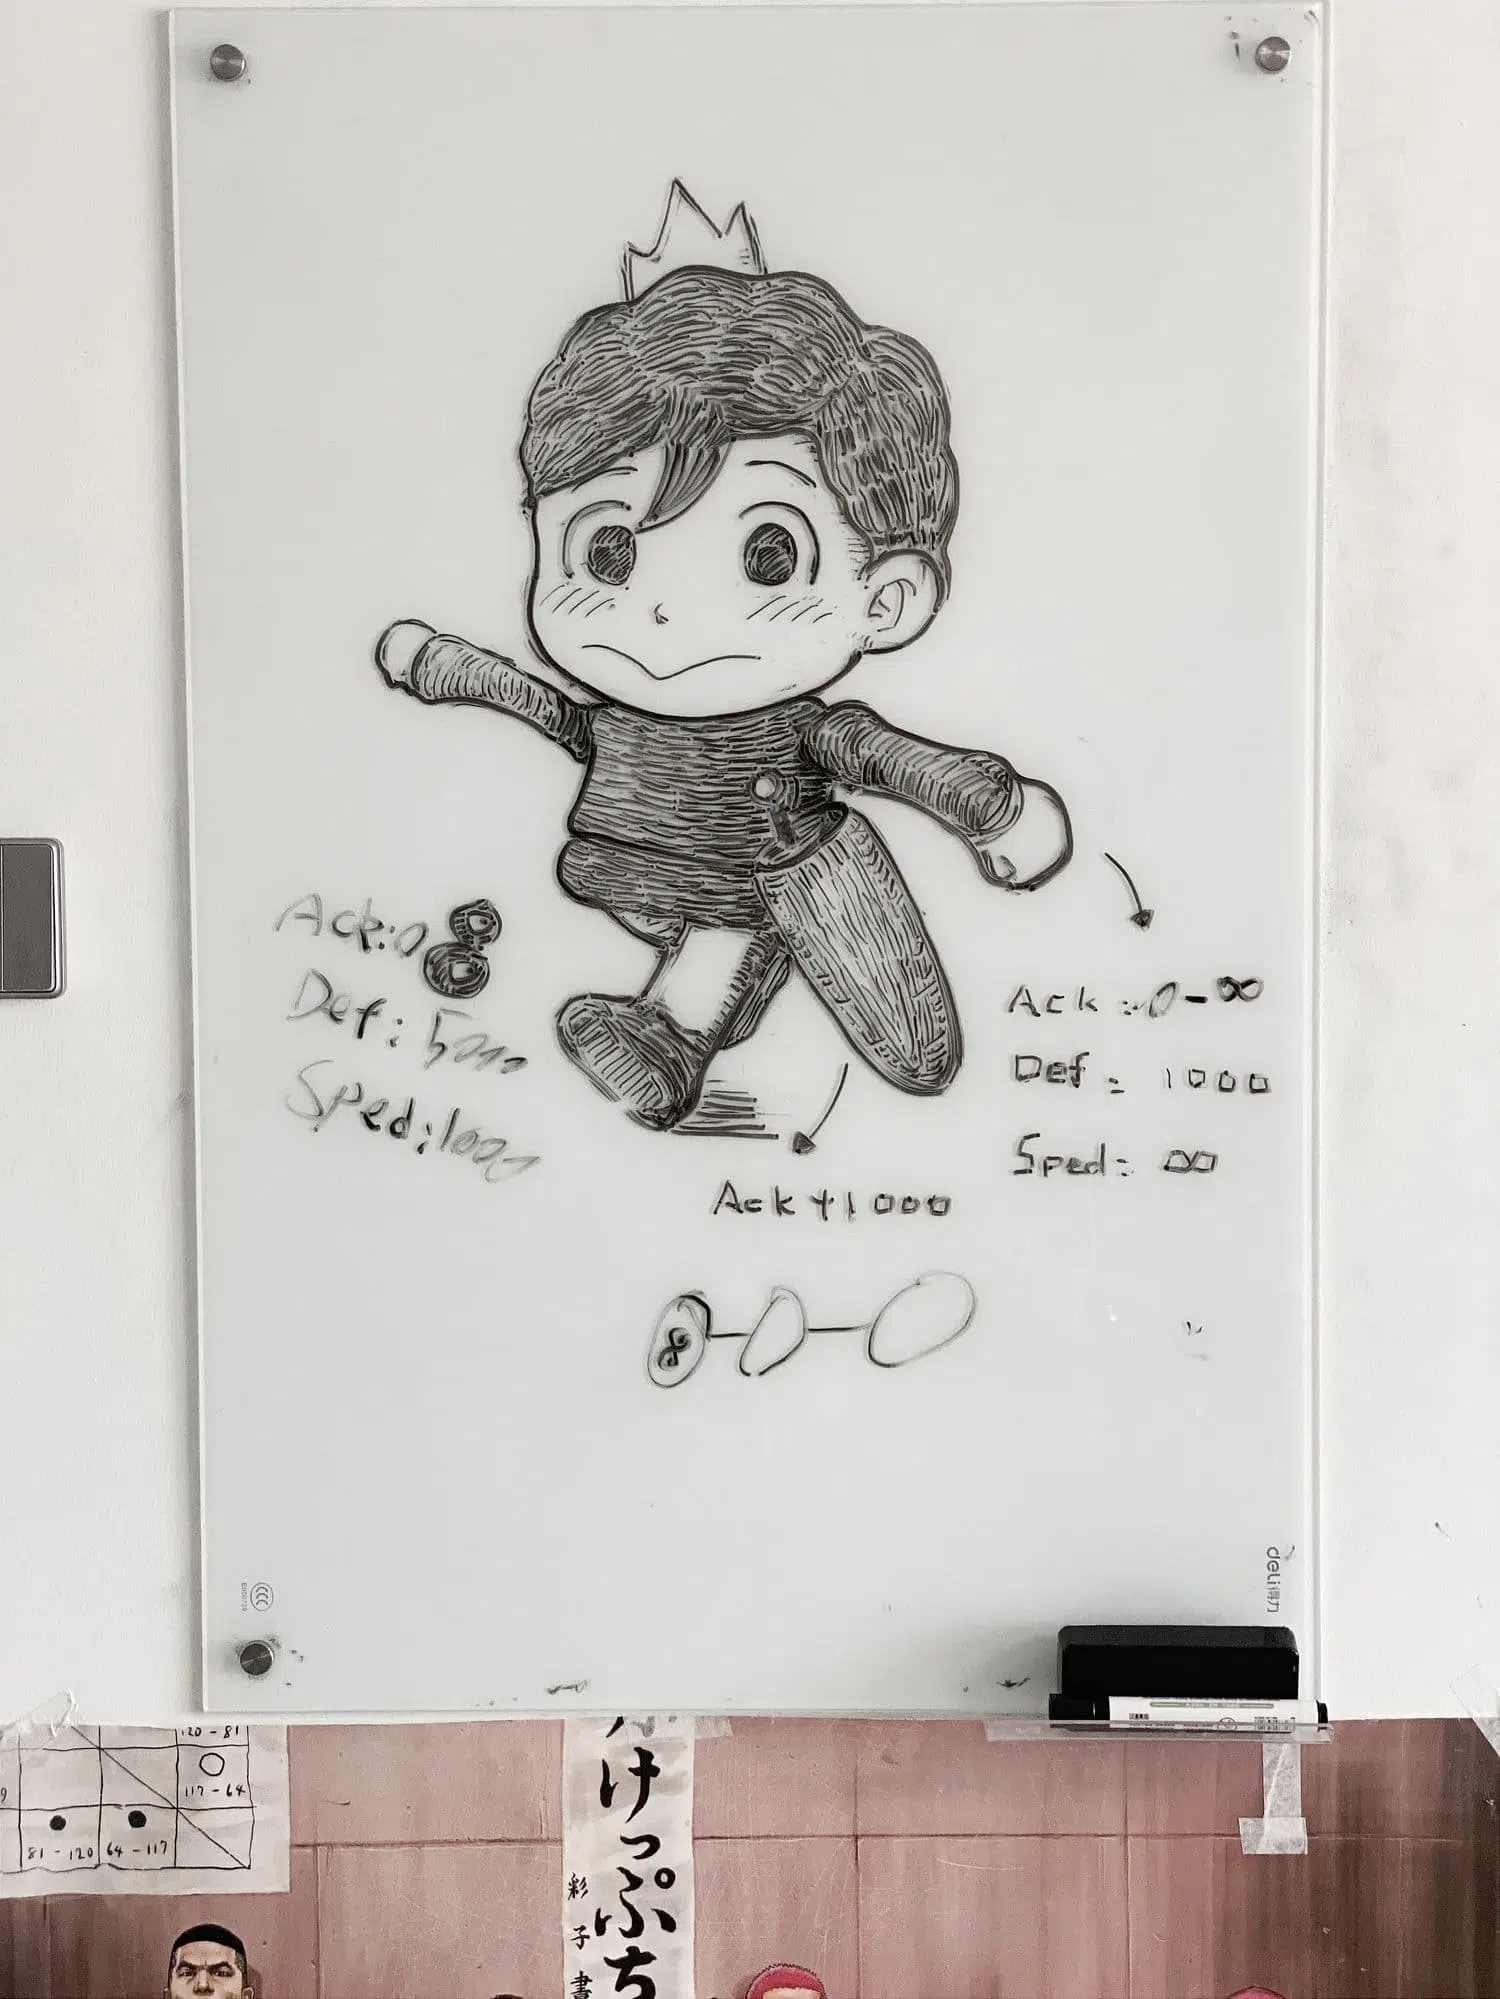 Ack:0
Def: 5000
Sped:1000
Ack : 0-∞
Def : 1000
Sped: ∞
Ack +1000
8
deli得力
120-81
117-64
81-120
64-117
けっぷち
彩子書